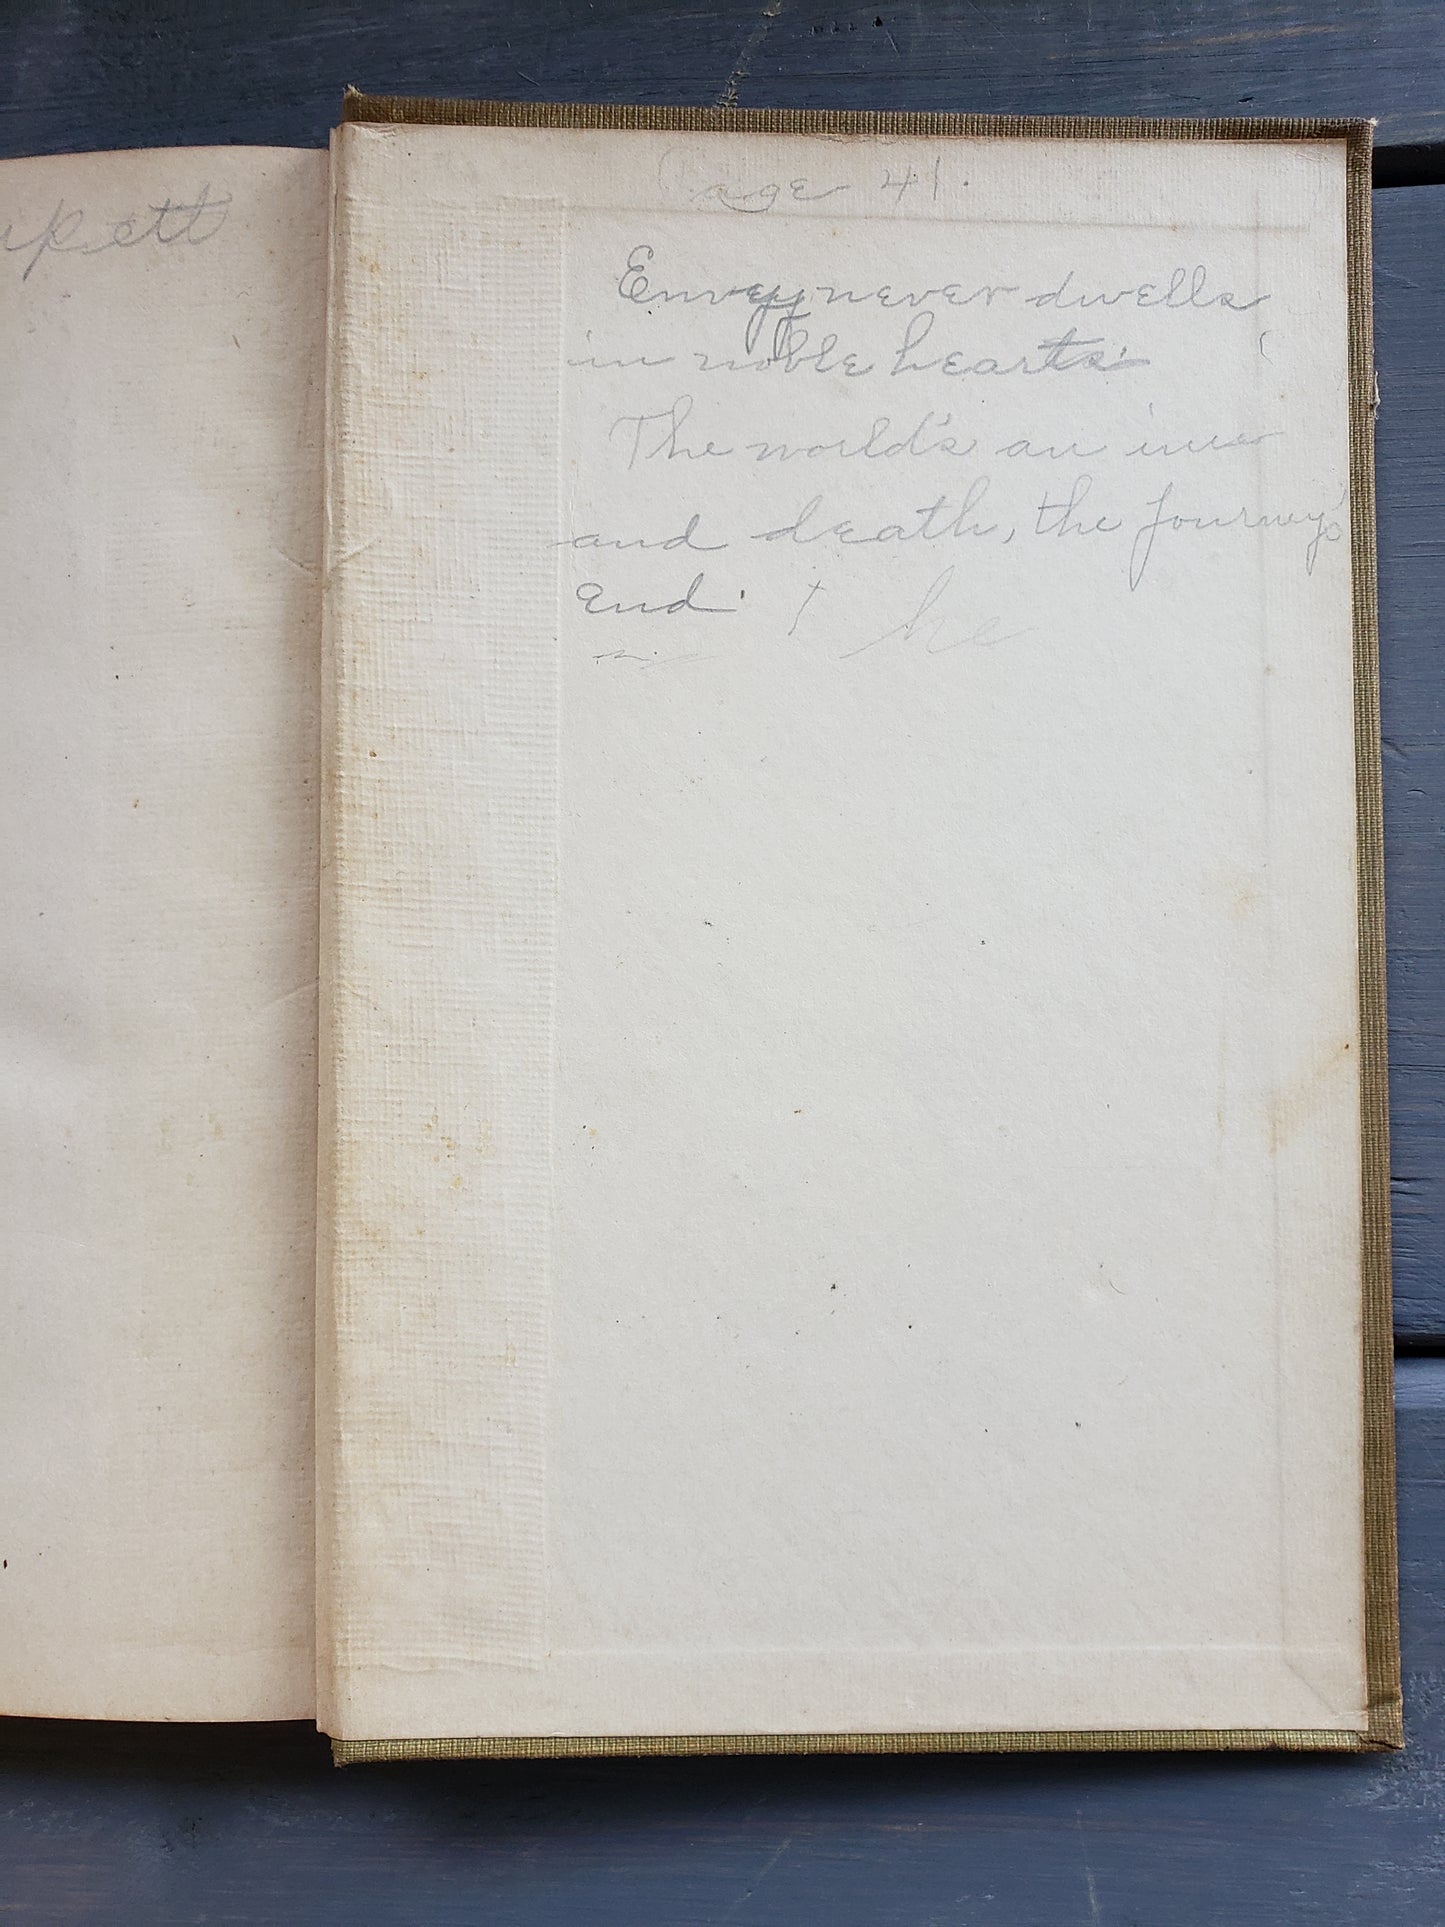 age 41.
Envy never dwells
in noble hearts.
The world's an inn
and death, the journey's
End.
he